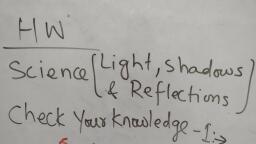 HW
Science (Light, Shadows
& Reflections)
Check Your Knowledge - 1:→